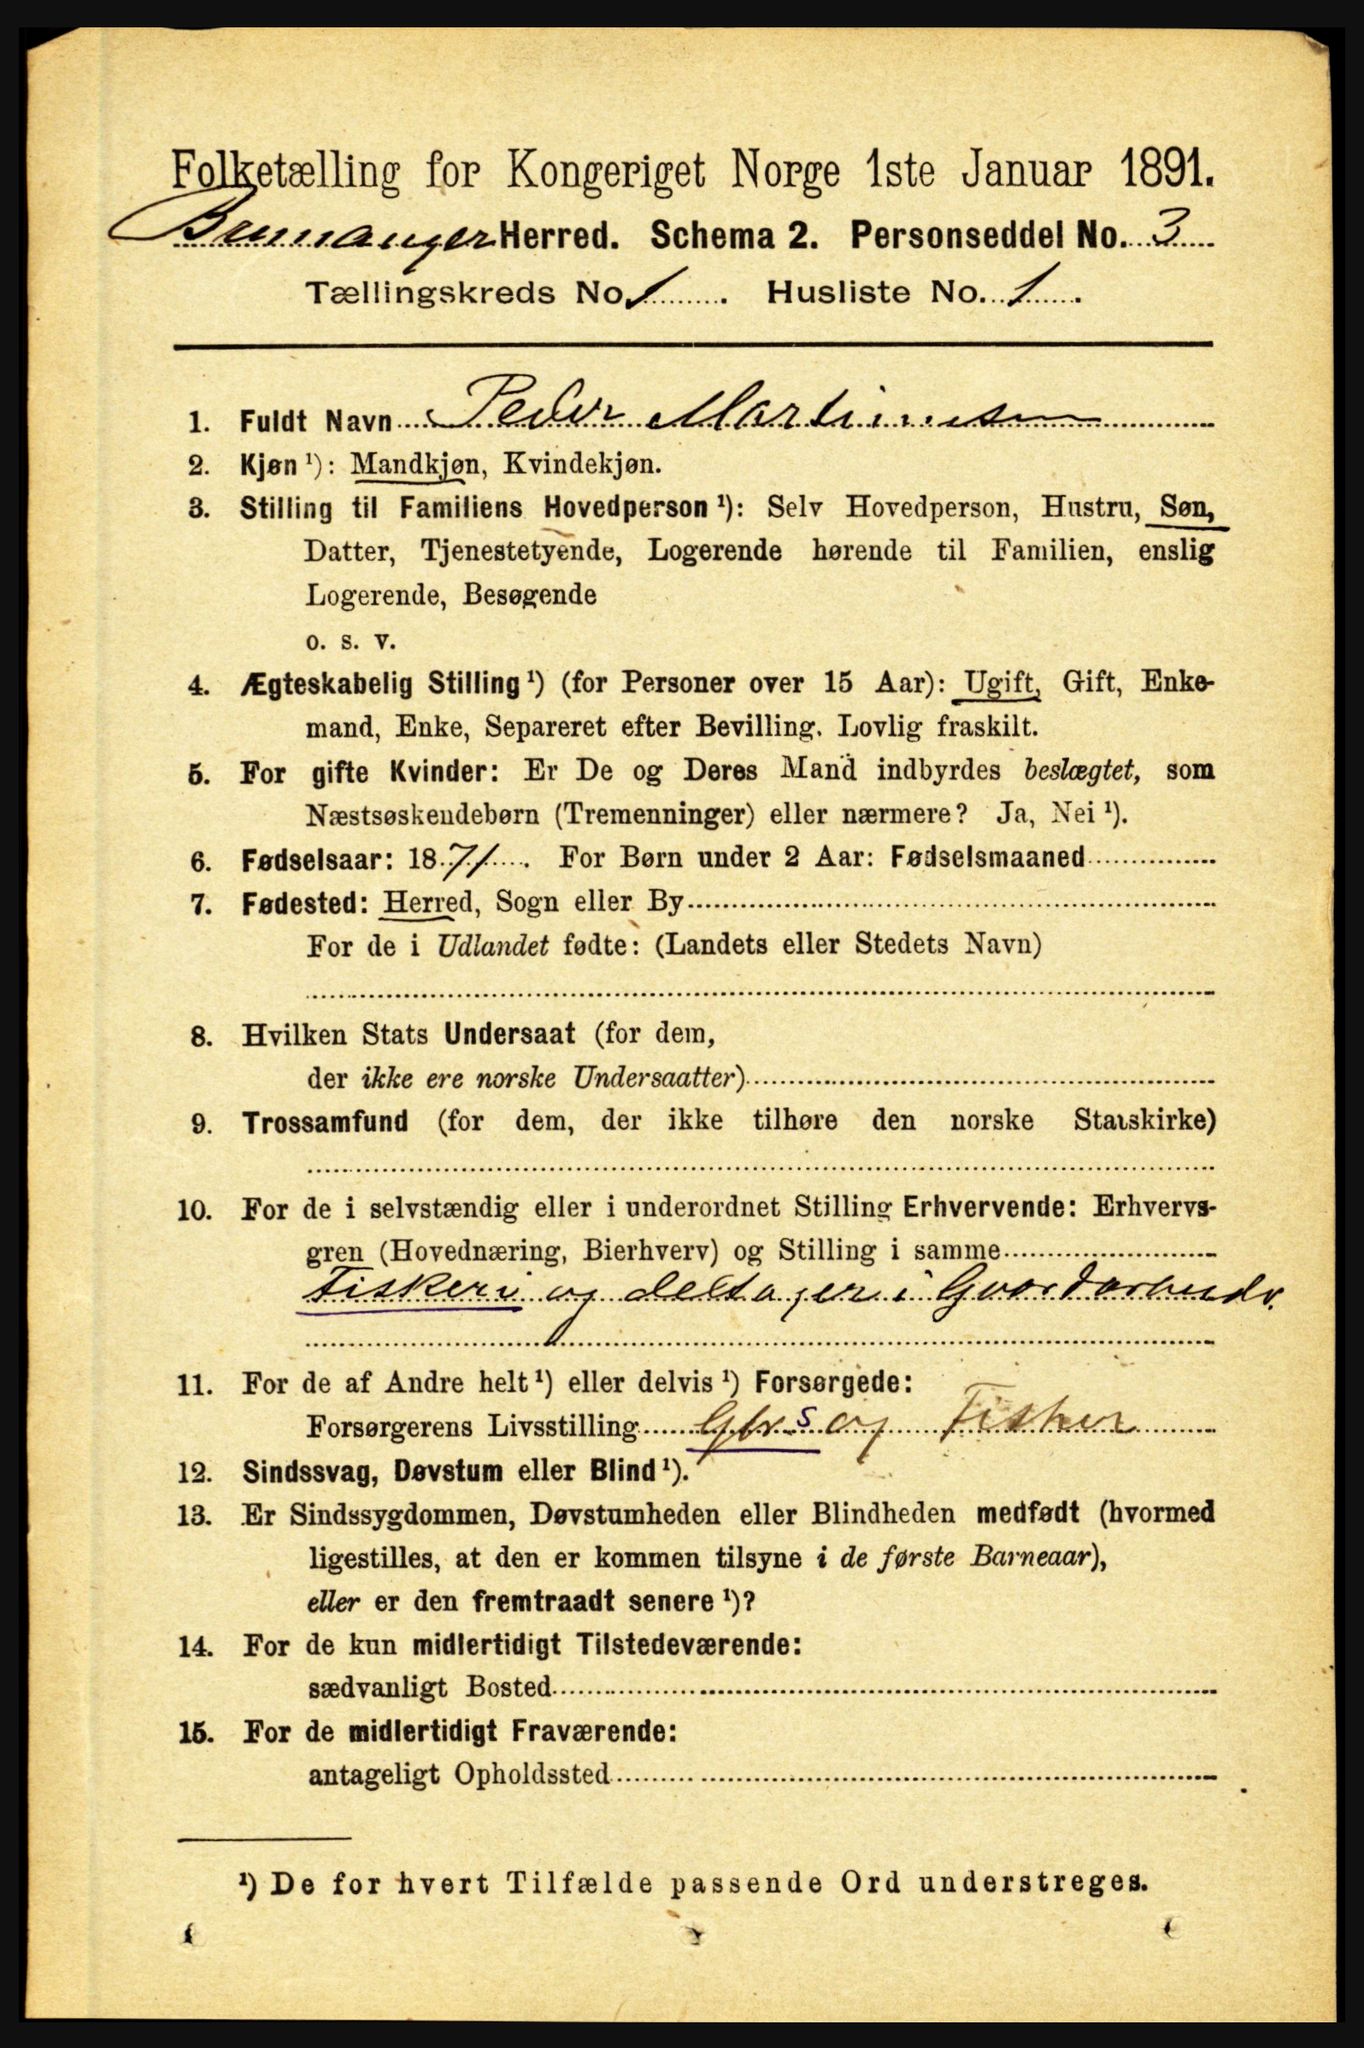 Folketælling for Kongeriget Norge 1ste Januar 1891.
Bremanger Herred. Schema 2. Personseddel No. 3
Tællingskreds No. 1. Husliste No. 1.
1. Fuldt Navn Peder Martinusen
2. Kjøn ¹): Mandkjøn, Kvindekjøn.
3. Stilling til Familiens Hovedperson ¹): Selv Hovedperson, Hustru, Søn,
Datter, Tjenestetyende, Logerende hørende til Familien, enslig
Logerende, Besøgende
o. s. v.
4. Ægteskabelig Stilling ¹) (for Personer over 15 Aar): Ugift, Gift, Enke-
mand, Enke, Separeret efter Bevilling. Lovlig fraskilt.
5. For gifte Kvinder: Er De og Deres Mand indbyrdes beslægtet, som
Næstsøskendebørn (Tremenninger) eller nærmere? Ja, Nei ¹).
6. Fødselsaar: 1871. For Børn under 2 Aar: Fødselsmaaned
7. Fødested: Herred, Sogn eller By
For de i Udlandet fødte: (Landets eller Stedets Navn)
8. Hvilken Stats Undersaat (for dem,
der ikke ere norske Undersaatter)
9. Trossamfund (for dem, der ikke tilhøre den norske Statskirke)
10. For de i selvstændig eller i underordnet Stilling Erhvervende: Erhvervs-
gren (Hovednæring, Bierhverv) og Stilling i samme
Fiskeri og deltager i Gaardarbeide.
11. For de af Andre helt ¹) eller delvis ¹) Forsørgede:
Forsørgerens Livsstilling Gbr. s og Fisker
12. Sindssvag, Døvstum eller Blind ¹).
13. Er Sindssygdommen, Døvstumheden eller Blindheden medfødt (hvormed
ligestilles, at den er kommen tilsyne i de første Barneaar),
eller er den fremtraadt senere ¹)?
14. For de kun midlertidigt Tilstedeværende:
sædvanligt Bosted
15. For de midlertidigt Fraværende:
antageligt Opholdssted
¹) De for hvert Tilfælde passende Ord understreges.